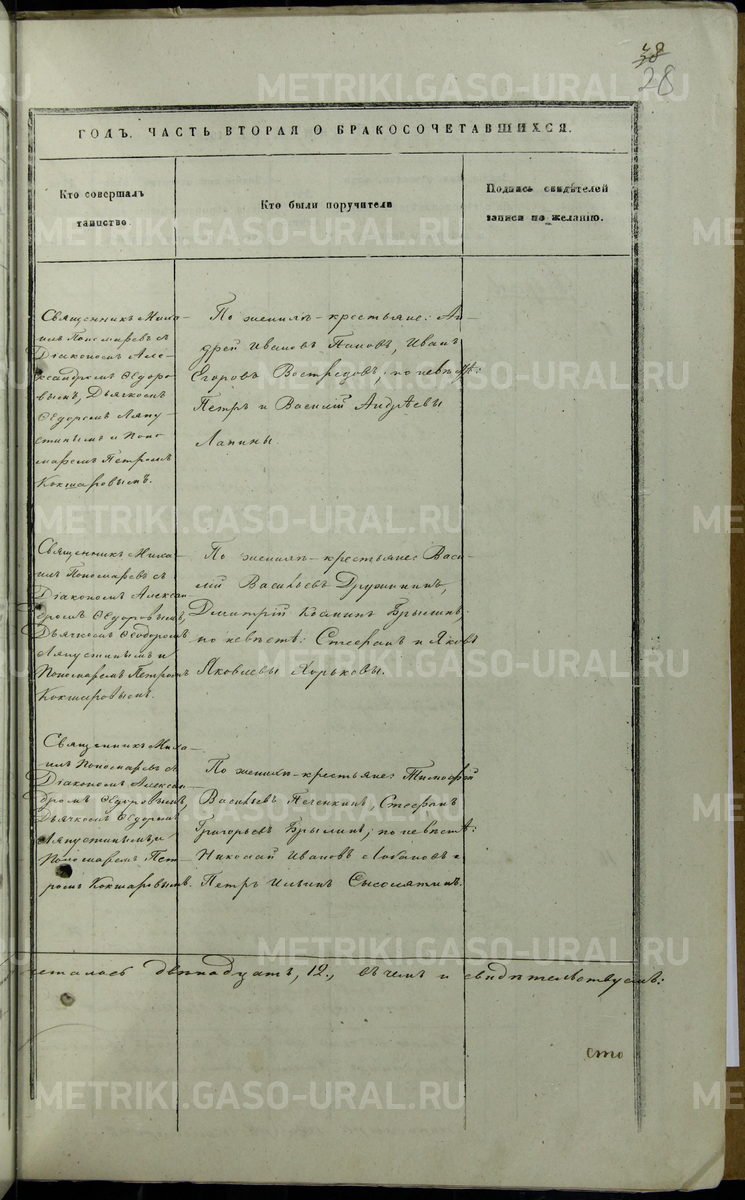 38
28
ГОДЪ, ЧАСТЬ ВТОРАЯ О БРАКОСОЧЕТАВШИХСЯ.
Кто совершалъ
таинство.
Кто были поручители
Подпись свидѣтелей
записи по желанію.
Священникъ Миха-
илъ Пономаревъ съ
Діакономъ Але-
ксандромъ Ѳедоро-
вымъ, Дьячкомъ
Ѳедоромъ Ляпу-
стинымъ и Поно-
маремъ Петромъ
Кокшаровымъ.
По женихѣ - крестьяне: Ан-
дрей Ивановъ Пановъ, Иванъ
Егоровъ Востредовъ; по невѣстѣ:
Петръ и Василій Андрѣевы
Лапины.
Священникъ Миха-
илъ Пономаревъ съ
Діакономъ Алексан-
дромъ Ѳедоровымъ,
Дьячкомъ Ѳеодоромъ
Ляпустинымъ и
Пономаремъ Петромъ
Кокшаровымъ.
По женихѣ - крестьяне: Васи-
лій Васильевъ Дружининъ,
Дмитрій Козминъ Брылинъ;
по невѣстѣ: Стефанъ и Яковъ
Яковлевы Хорьковы.
Священникъ Миха-
илъ Пономаревъ съ
Діакономъ Алексан-
дромъ Ѳедоровымъ,
Дьячкомъ Ѳедоромъ
Ляпустинымъ, и
Пономаремъ Пет-
ромъ Кокшаровымъ.
По женихѣ - крестьяне: Тимофей
Васильевъ Пеленкинъ, Стефанъ
Григорьевъ Брылинъ; по невѣстѣ:
Николай Ивановъ Лобановъ и
Петръ Ильинъ Сысолятинъ.
четалось двѣнадцать, 12., въ чемъ и свидѣтельствуемъ:
сто
METRIKI.GASO-URAL.RU